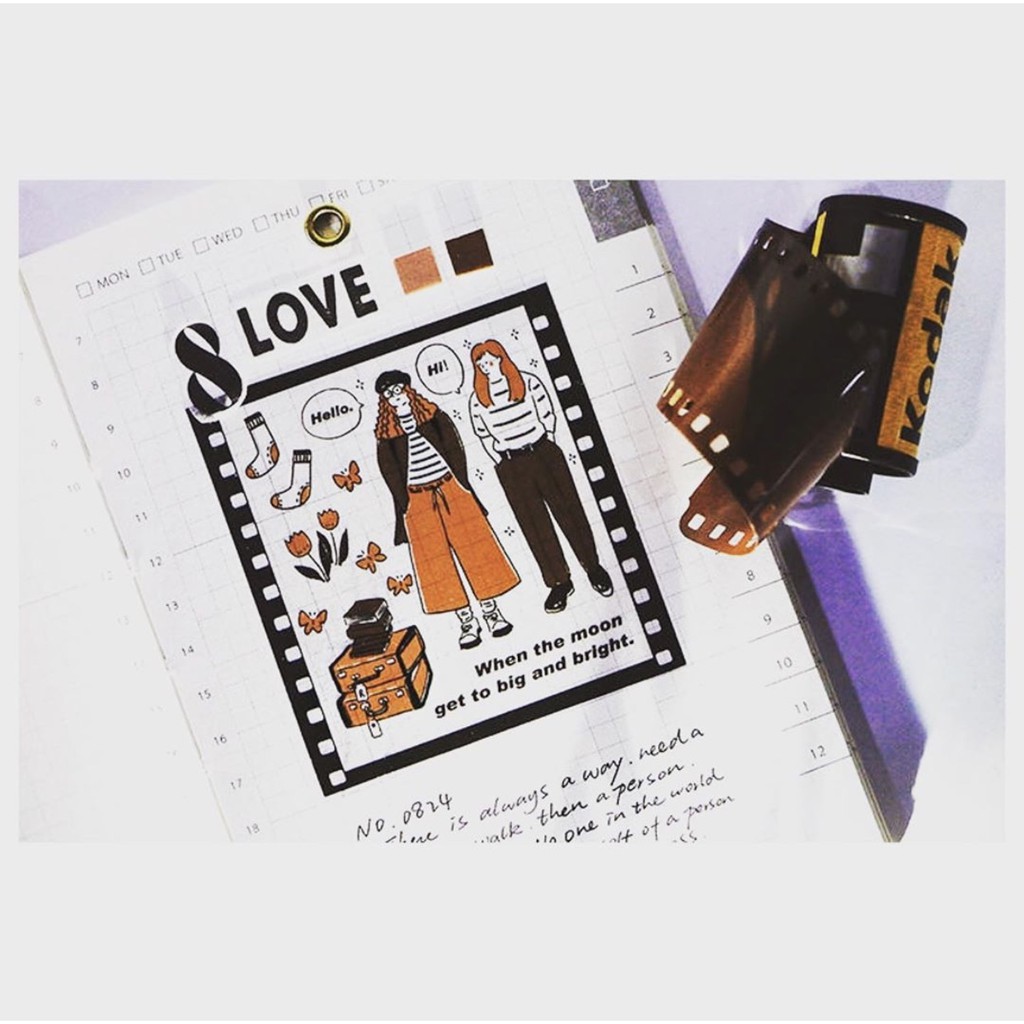 MON TUE WED THU FRI
8 LOVE
Hello.
Hi!
When the moon
get to big and bright.
NO.0824
There is always a way. need a
walk. then a person.
No one in the world
of a person
7
8
9
10
11
12
13
14
15
16
17
18
1
2
3
8
9
10
11
12
Kodak